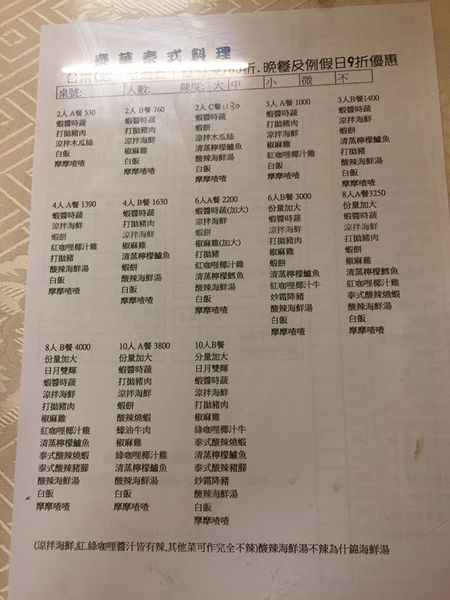 華泰式料理
折.晚餐及例假日9折優惠
桌號: 人數: 辣度: 大 中 小 微 不
2人 A餐 530
蝦醬時蔬
打拋豬肉
涼拌木瓜絲
白飯
摩摩喳喳
2人 B餐 760
蝦醬時蔬
打拋豬肉
涼拌海鮮
椒麻雞
白飯
摩摩喳喳
2人 C餐1130
蝦醬時蔬
蝦餅
涼拌木瓜絲
清蒸檸檬鱸魚
酸辣海鮮湯
白飯
摩摩喳喳
3人 A餐 1000
蝦醬時蔬
打拋豬肉
涼拌海鮮
椒麻雞
紅咖哩椰汁雞
白飯
摩摩喳喳
3人 B餐1400
蝦醬時蔬
涼拌海鮮
蝦餅
清蒸檸檬鱸魚
打拋豬肉
酸辣海鮮湯
白飯
摩摩喳喳
4人 A餐 1390
蝦醬時蔬
涼拌海鮮
蝦餅
紅咖哩椰汁雞
打拋豬
酸辣海鮮湯
白飯
摩摩喳喳
4人 B餐 1630
蝦醬時蔬
打拋豬肉
涼拌海鮮
椒麻雞
清蒸檸檬鱸魚
蝦餅
酸辣海鮮湯
白飯
摩摩喳喳
6人A餐 2200
蝦醬時蔬(加大)
涼拌海鮮
蝦餅
椒麻雞(加大)
打拋豬
紅咖哩椰汁雞
清蒸檸檬鱈魚
酸辣海鮮湯
白飯
摩摩喳喳
6人B餐 3000
份量加大
蝦醬時蔬
打拋豬肉
涼拌海鮮
蝦餅
椒麻雞
清蒸檸檬鱸魚
紅咖哩椰汁牛
炒霜降豬
酸辣海鮮湯
白飯
摩摩喳喳
8人A餐3250
份量加大
蝦醬時蔬
涼拌海鮮
打拋豬肉
蝦餅
椒麻雞
清蒸檸檬鱈魚
紅咖哩椰汁雞
泰式酸辣蝦
酸辣海鮮湯
白飯
摩摩喳喳
8人 B餐 4000
份量加大
日月雙輝
蝦醬時蔬
涼拌海鮮
打拋豬肉
椒麻雞
紅咖哩椰汁雞
清蒸檸檬鱸魚
泰式酸辣燒蝦
泰式酸辣豬腳
酸辣海鮮湯
白飯
摩摩喳喳
10人 A餐 3800
份量加大
蝦醬時蔬
打拋豬肉
涼拌海鮮
蝦餅
酸辣燒蝦
蠔油牛肉
椒麻雞
綠咖哩椰汁雞
清蒸檸檬鱸魚
酸辣海鮮湯
白飯
摩摩喳喳
10人B餐
分量加大
日月雙輝
蝦醬時蔬
涼拌海鮮
打拋豬肉
椒麻雞
綠咖哩椰汁牛
清蒸檸檬鱸魚
泰式酸辣燒蝦
泰式酸辣豬腳
炒霜降豬
酸辣海鮮湯
白飯
摩摩喳喳
(涼拌海鮮,紅,綠咖哩醬汁皆有辣,其他菜可作完全不辣)酸辣海鮮湯不辣為什錦海鮮湯